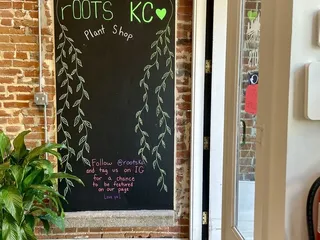 rOOTS KC♥
Plant Shop
Follow @rootskc
and tag us on IG
for a chance
to be featured
on our page
Love ya!